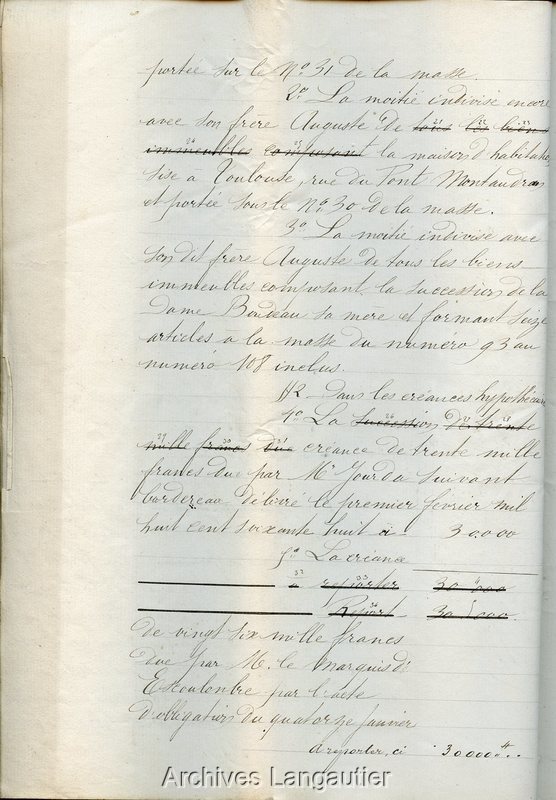 portée sur le N° 31 de la masse.
2° La moitié indivise encore
avec son frere Auguste de tous les biens
immeubles composant la maison d'habitation
sise à Toulouse, rue du Pont Montaudran
et portée sous le N° 30 de la masse.
3° La moitié indivise avec
son dit frere Auguste de tous les biens
immeubles composant la succession de la
Dame Bondeau sa mere et formant seize
articles à la masse du numéro 93 au
numéro 108 inclus.
§2 Dans les créances hypothécaires
4° La succession de trente
mille francs due créance de trente mille
francs due par Mr Jourda suivant
bordereau délivré le premier février mil
huit cent soixante huit ci 30.000
5° La créance
à reporter 30,000
Report 30,000
de vingt six mille francs
due par M. le Marquis d'
Escouloubre par l'acte
d'obligation du quatorze janvier
à reporter, ci 30000 ff..
Archives Langautier